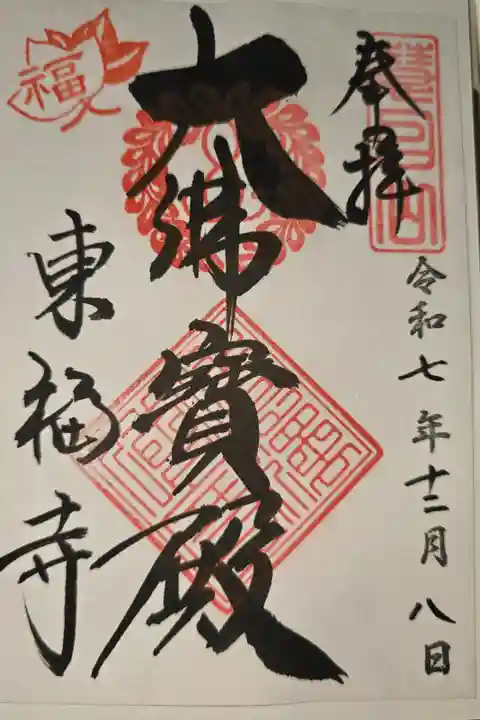 奉拝
令和七年十二月八日
大佛寳殿
東福寺
福
慧日山